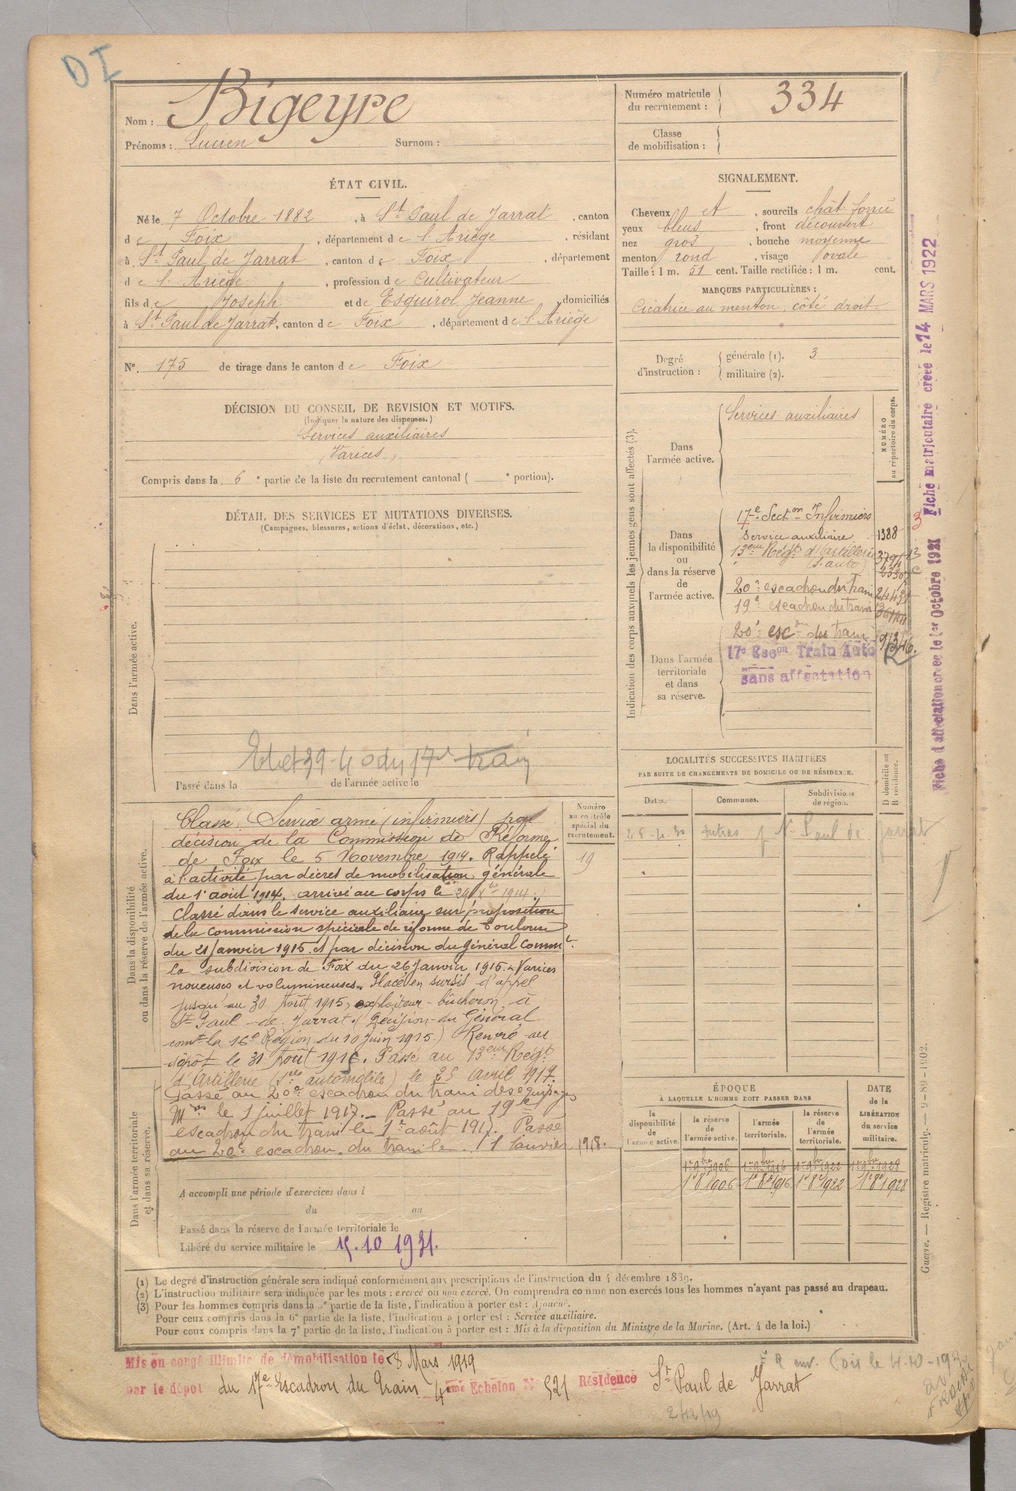 DI
Nom : Bigeyre
Prénoms : Lucien Surnom :
Numéro matricule du recrutement : 334
Classe de mobilisation :
ÉTAT CIVIL.
Né le 7 Octobre 1882, à St Paul de Jarrat, canton
de Foix, département de l'Ariège, résidant
à St Paul de Jarrat, canton de Foix, département
de l'Ariège, profession de Cultivateur
fils de Joseph et de Esquirol Jeanne, domiciliés
à St Paul de Jarrat, canton de Foix, département de l'Ariège
N°. 175 de tirage dans le canton de Foix
SIGNALEMENT.
Cheveux et, sourcils chât foncé
yeux bleus, front découvert
nez gros, bouche moyenne
menton rond, visage ovale
Taille : 1 m. 51 cent. Taille rectifiée : 1 m. cent.
MARQUES PARTICULIÈRES :
Cicatrice au menton, côté droit
Degré d'instruction : générale (1). 3
militaire (2).
DÉCISION DU CONSEIL DE REVISION ET MOTIFS.
(Indiquer la nature des dispenses.)
Services auxiliaires
Varices
Compris dans la 6e partie de la liste du recrutement cantonal ( e portion).
DÉTAIL DES SERVICES ET MUTATIONS DIVERSES.
(Campagnes, blessures, actions d'éclat, décorations, etc.)
Dans l'armée active.
Passé dans la de l'armée active le
Indication des corps auxquels les jeunes gens sont affectés (3).
NUMÉRO au répertoire du corps.
Dans l'armée active.
Services auxiliaires
Dans la disponibilité ou dans la réserve de l'armée active.
17e Secton Infirmiers
Service auxiliaire 1388
13eme Régt d'Artillerie
(S. auto)
20e escadron du train
19e escadron du train
20e escon du train
Dans l'armée territoriale et dans sa réserve.
17e Escon Train Auto
sans affectation
Fiche d'affectation créée le 1er Octobre 1921 Fiche matriculaire créée le 14 MARS 1922
LOCALITÉS SUCCESSIVES HABITÉES
PAR SUITE DE CHANGEMENTS DE DOMICILE OU DE RÉSIDENCE.
Dates. Communes. Subdivisions de région. D domicile ou R résidence.
Paul de Jarrat
Dans la disponibilité ou dans la réserve de l'armée active.
Numéro au contrôle spécial du recrutement.
19
Classé Service armé (infirmiers) par
décision de la Commission de Réforme
de Foix le 5 Novembre 1914. Rappelé
à l'activité par décret de mobilisation générale
du 1er août 1914, arrivé au corps le
Classé dans le service auxiliaire sur proposition
de la commission spéciale de réforme de Toulouse
du 21 janvier 1915 et par décision du général Commt
la subdivision de Foix du 26 janvier 1915. Varices
noueuses et volumineuses. Placé en sursis d'appel
jusqu'au 30 Août 1915, exploiteur-bûcheron à
St Paul-de-Jarrat (Décision du Général
comt la 16e Région du 10 juin 1915) Rentré au
dépôt le 31 Août 1915. Passé au 13eme Régt
d'Artillerie (Ste automobile) le 25 Avril 1917.
Passé au 20e escadron du train des équipages
Mres le 1 juillet 1917. Passé au 19e
escadron du train le 1er août 1917. Passé
au 20e escadron du train le 1 Janvier 1918.
Dans l'armée territoriale et dans sa réserve.
A accompli une période d'exercices dans l
du au
Passé dans la réserve de l'armée territoriale le
Libéré du service militaire le 15.10 1931.
ÉPOQUE
À LAQUELLE L'HOMME DOIT PASSER DANS
la disponibilité de l'armée active. la réserve de l'armée active. l'armée territoriale. la réserve de l'armée territoriale. DATE de la LIBÉRATION du service militaire.
1er 8bre 1906 1er 8bre 1916 1er 8bre 1922 1er 8bre 1928
Guerre. — Registre matricule. — 9-89-1902.
(1) Le degré d'instruction générale sera indiqué conformément aux prescriptions de l'instruction du 4 décembre 1889.
(2) L'instruction militaire sera indiquée par les mots : exercé ou non exercé. On comprendra comme non exercés tous les hommes n'ayant pas passé au drapeau.
(3) Pour les hommes compris dans la 5e partie de la liste, l'indication à porter est : Ajourné.
Pour ceux compris dans la 6e partie de la liste, l'indication à porter est : Service auxiliaire.
Pour ceux compris dans la 7e partie de la liste, l'indication à porter est : Mis à la disposition du Ministre de la Marine. (Art. 4 de la loi.)
Mis en congé illimité de démobilisation le 8 Mars 1919
par le dépôt du 17e Escadron du Train 4eme Echelon N° 521 Résidence St Paul de Jarrat